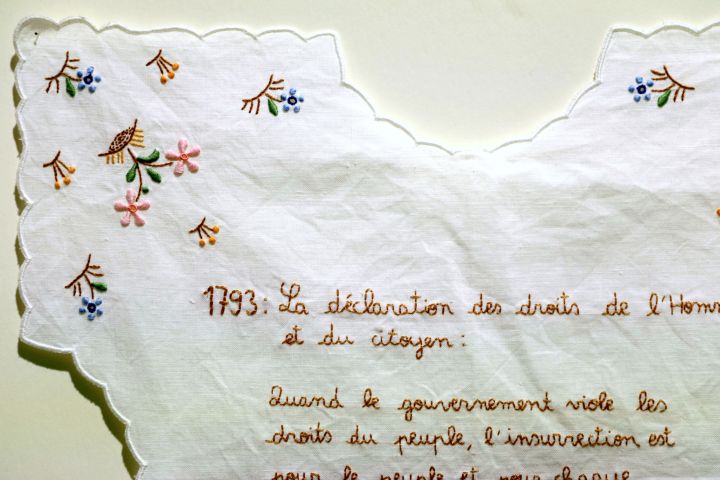 1793: La déclaration des droits de l'Homm
et du citoyen:
Quand le gouvernement viole les
droits du peuple, l'insurrection est
pour le peuple et pour chaque